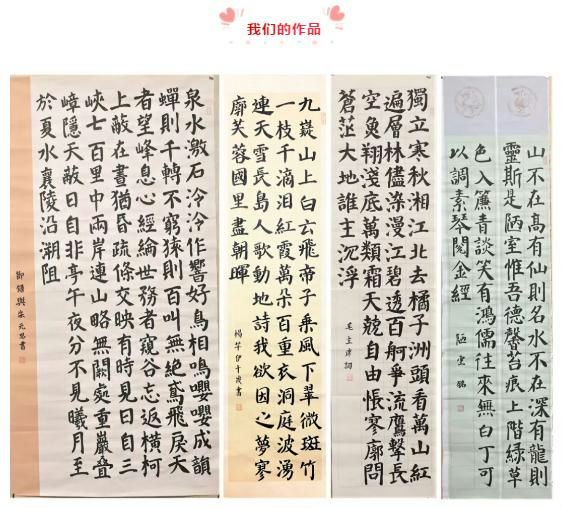 我们的作品
泉水激石泠泠作響好鳥相鳴嚶嚶成韻
蟬則千轉不窮猿則百叫無絕鳶飛戾天
者望峰息心經綸世務者窺谷忘返橫柯
上蔽在晝猶昏疏條交映有時見日自三
峽七百里中兩岸連山略無闕處重巖疊
嶂隱天蔽日自非亭午夜分不見曦月至
於夏水襄陵沿溯阻
與朱元思書
九嶷山上白云飛帝子乘風下翠微斑竹
一枝千滴泪紅霞萬朵百重衣洞庭波湧
連天雪長島人歌動地詩我欲因之夢寥
廓芙蓉國里盡朝暉
楊芊伊十歲書
獨立寒秋湘江北去橘子洲頭看萬山紅
遍層林儘染漫江碧透百舸爭流鷹擊長
空魚翔淺底萬類霜天競自由悵寥廓問
蒼茫大地誰主沉浮
毛主席詞
山不在高有仙則名水不在深有龍則
靈斯是陋室惟吾德馨苔痕上階綠草
色入簾青談笑有鴻儒往來無白丁可
以調素琴閱金經
陋室銘